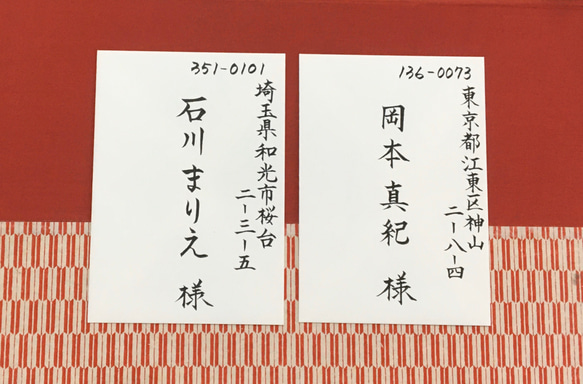 351-0101
埼玉県和光市桜台
二-三-五
石川まりえ 様
136-0073
東京都江東区神山
二-八-四
岡本真紀 様